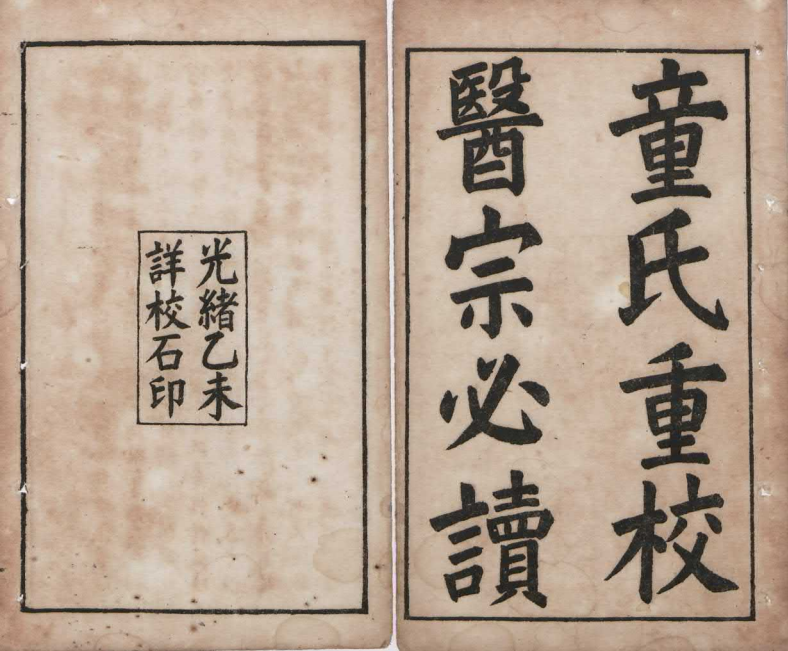 童氏重校
醫宗必讀
光緒乙未
詳校石印